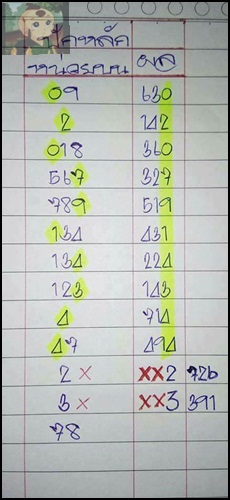 ปักหลัก
หน่วยบน ผล
09 630
2 142
018 360
567 327
789 519
134 431
134 224
123 143
4 714
47 494
2 × ××2 726
3 × ××3 391
78